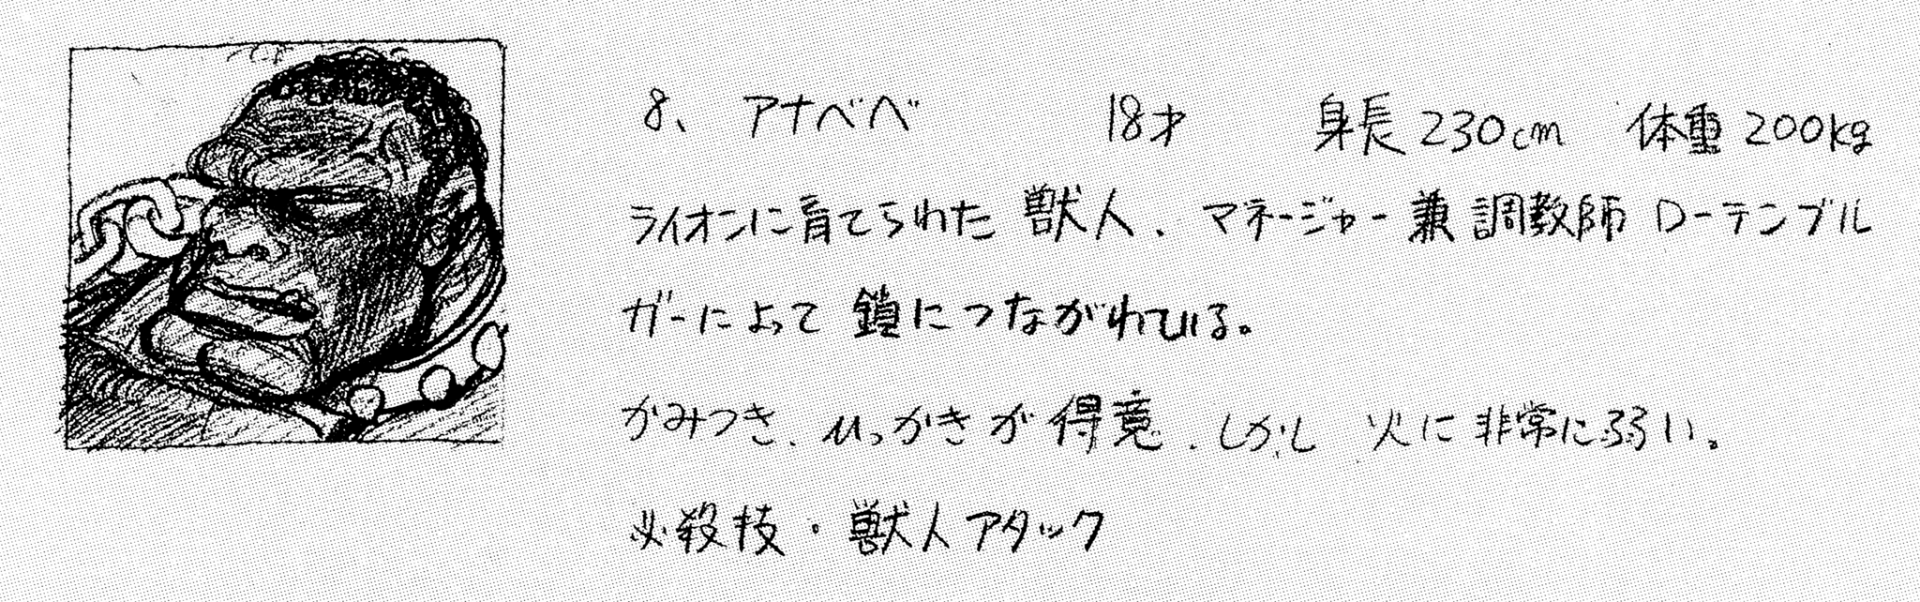 8、 アナベベ 18才 身長 230cm 体重 200kg
ライオンに育てられた 獣人、マネージャー兼 調教師 ローテンブル
ガーによって 鎖につながれている。
かみつき、ひっかきが 得意、しかし 火に非常に弱い。
必殺技・獣人アタック